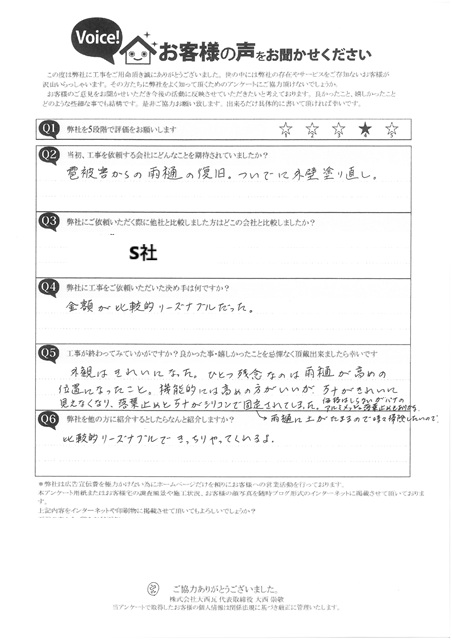 Voice!
お客様の声をお聞かせください
この度は弊社に工事をご用命頂き誠にありがとうございました。世の中には弊社の存在やサービスをご存知ないお客様が
沢山いらっしゃいます。その方たちに弊社をよく知って頂くためのアンケートにご協力頂けないでしょうか。
お客様のご意見をお聞かせいただき今後の活動に反映させていただきたいと考えております。良かったこと、嬉しかったこと
どのような些細な事でも結構です。是非ご協力お願い致します。出来るだけ具体的に書いて頂ければ幸いです。
Q1 弊社を5段階で評価をお願いします ☆ ☆ ☆ ★ ☆
Q2 当初、工事を依頼する会社にどんなことを期待されていましたか?
雹被害からの雨樋の復旧。ついでに外壁塗り直し。
Q3 弊社にご依頼いただく際に他社と比較しました方はどこの会社と比較しましたか?
S社
Q4 弊社に工事をご依頼いただいた決め手は何ですか?
金額が比較的リーズナブルだった。
Q5 工事が終わってみていかがですか?良かった事・嬉しかったことを忌憚なく頂戴出来ましたら幸いです
外観はきれいになった。ひとつ残念なのは雨樋が高めの
位置になったこと。機能的には高めの方がいいが、瓦ナがきれいに
見えなくなり、落葉止めと瓦ナがシリコンで固定されてしまった。
→雨樋に上がたまるので時々掃除したいので。
Q6 弊社を他の方に紹介するとしたらなんと紹介しますか?
比較的リーズナブルできっちりやってくれるよ。
＊弊社は広告宣伝費を極力かけない為にホームページだけを頼りにお客様への営業活動を行っております。
本アンケート用紙またはお客様宅の調査風景や施工状況、お客様の顔写真を随時ブログ形式のインターネットに掲載させて頂いております。
上記内容をインターネットや印刷物に掲載させて頂いてもよろしいでしょうか?
ご協力ありがとうございました。
株式会社大西瓦 代表取締役 大西 崇敬
当アンケートで取得したお客様の個人情報は関係法規に基づき厳正に管理いたします。